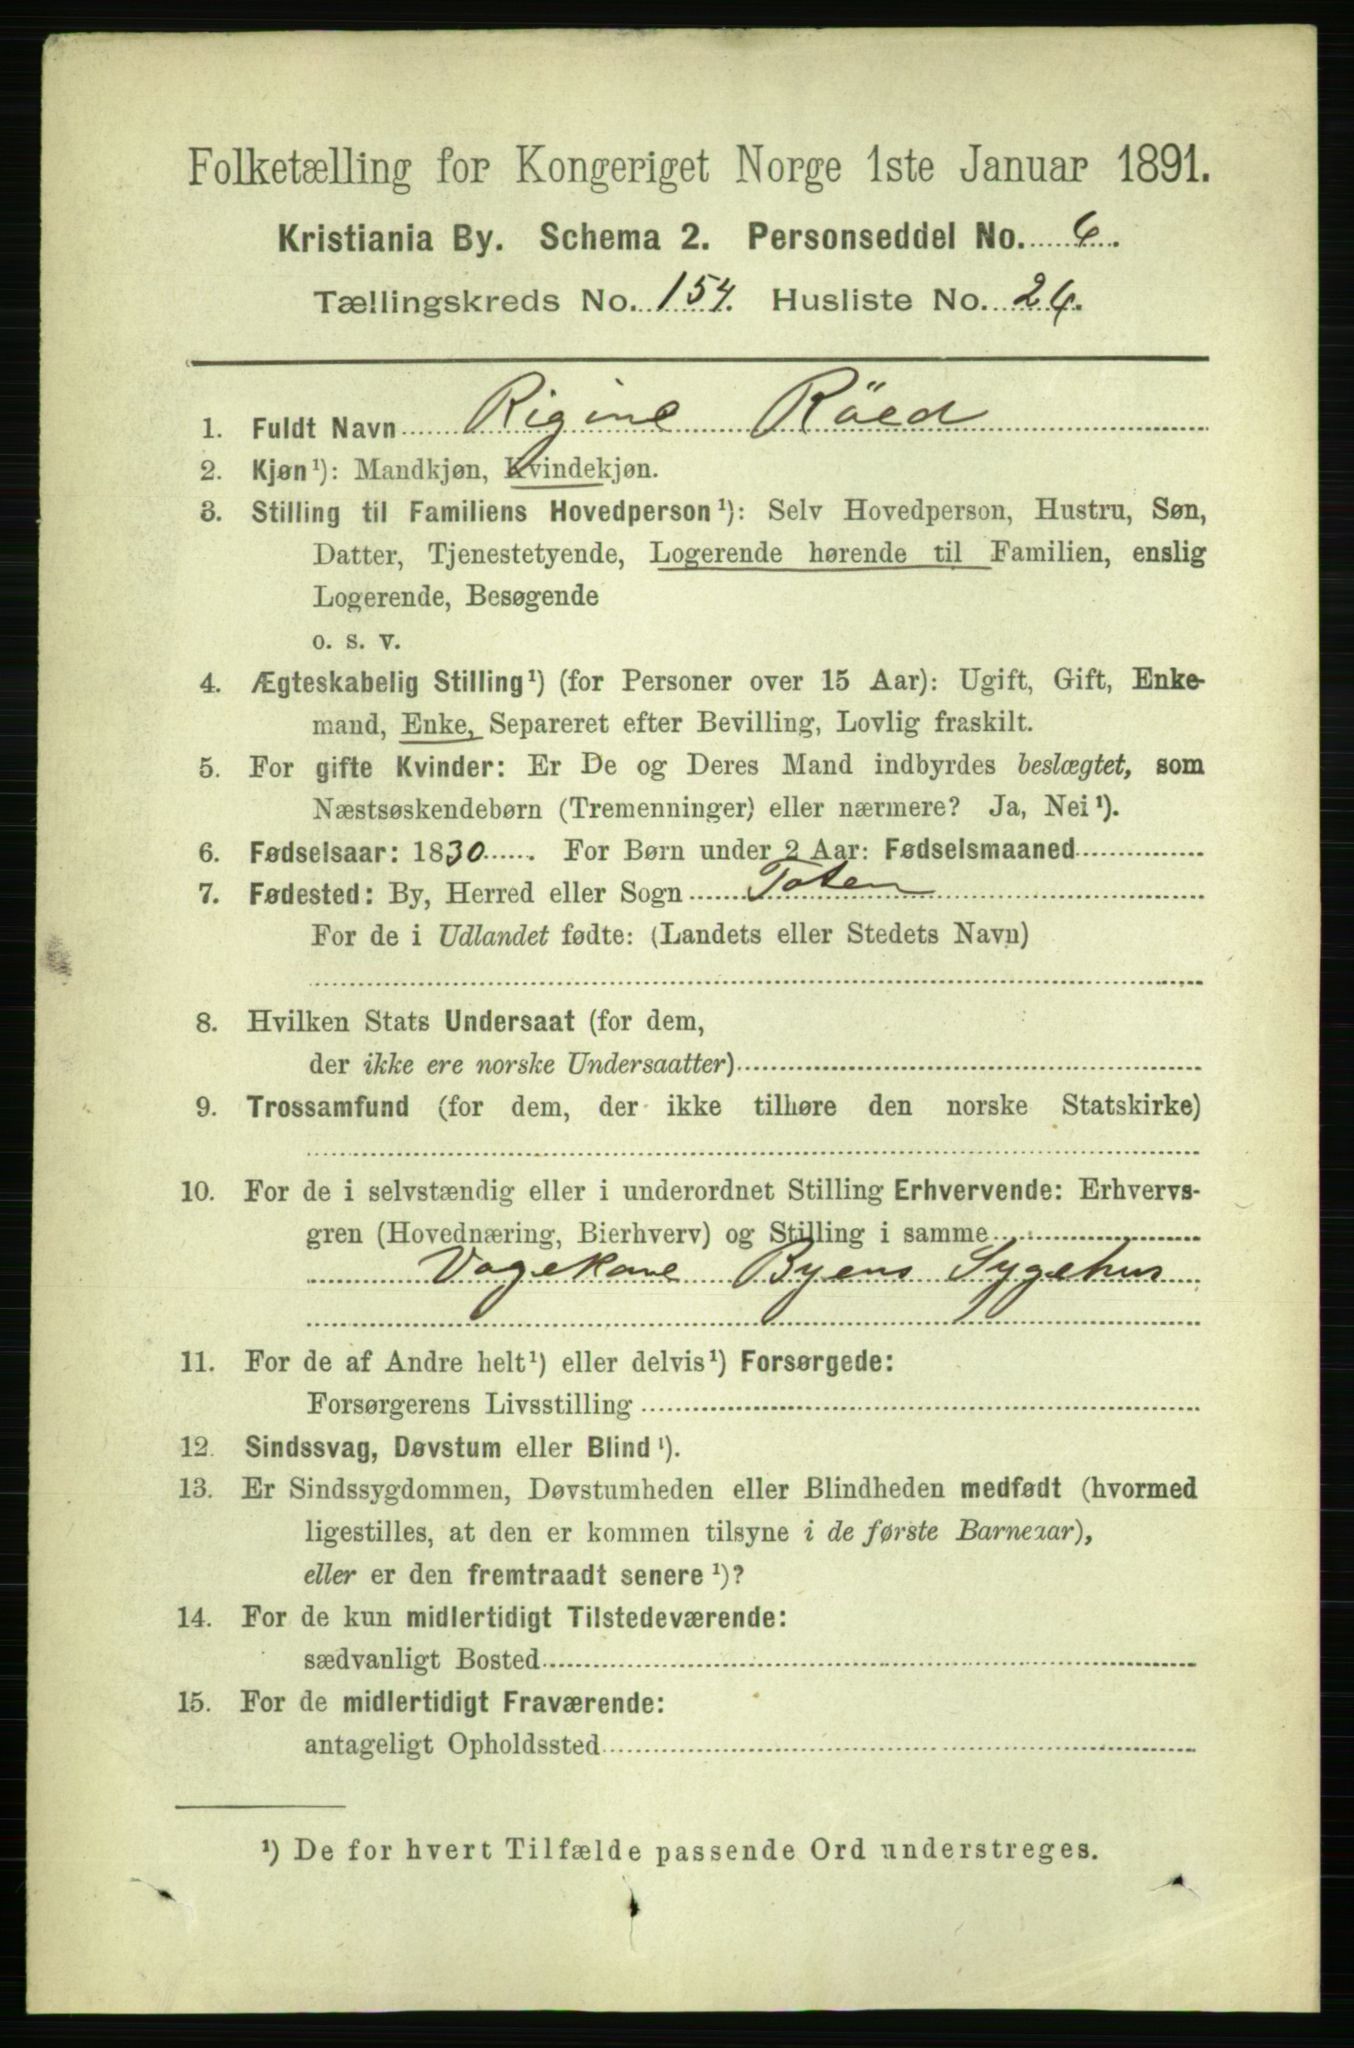 Folketælling for Kongeriget Norge 1ste Januar 1891.
Kristiania By. Schema 2. Personseddel No. 6.
Tællingskreds No. 154. Husliste No. 26.
1. Fuldt Navn Rigine Röed
2. Kjøn¹): Mandkjøn, Kvindekjøn.
3. Stilling til Familiens Hovedperson¹): Selv Hovedperson, Hustru, Søn,
Datter, Tjenestetyende, Logerende hørende til Familien, enslig
Logerende, Besøgende
o. s. v.
4. Ægteskabelig Stilling¹) (for Personer over 15 Aar): Ugift, Gift, Enke-
mand, Enke, Separeret efter Bevilling, Lovlig fraskilt.
5. For gifte Kvinder: Er De og Deres Mand indbyrdes beslægtet, som
Næstsøskendebørn (Tremenninger) eller nærmere? Ja, Nei¹).
6. Fødselsaar: 1830. For Børn under 2 Aar: Fødselsmaaned
7. Fødested: By, Herred eller Sogn Toten
For de i Udlandet fødte: (Landets eller Stedets Navn)
8. Hvilken Stats Undersaat (for dem,
der ikke ere norske Undersaatter)
9. Trossamfund (for dem, der ikke tilhøre den norske Statskirke)
10. For de i selvstændig eller i underordnet Stilling Erhvervende: Erhvervs-
gren (Hovednæring, Bierhverv) og Stilling i samme
Vogekone Byens Sygehus
11. For de af Andre helt¹) eller delvis¹) Forsørgede:
Forsørgerens Livsstilling
12. Sindssvag, Døvstum eller Blind¹).
13. Er Sindssygdommen, Døvstumheden eller Blindheden medfødt (hvormed
ligestilles, at den er kommen tilsyne i de første Barneaar),
eller er den fremtraadt senere¹)?
14. For de kun midlertidigt Tilstedeværende:
sædvanligt Bosted
15. For de midlertidigt Fraværende:
antageligt Opholdssted
¹) De for hvert Tilfælde passende Ord understreges.